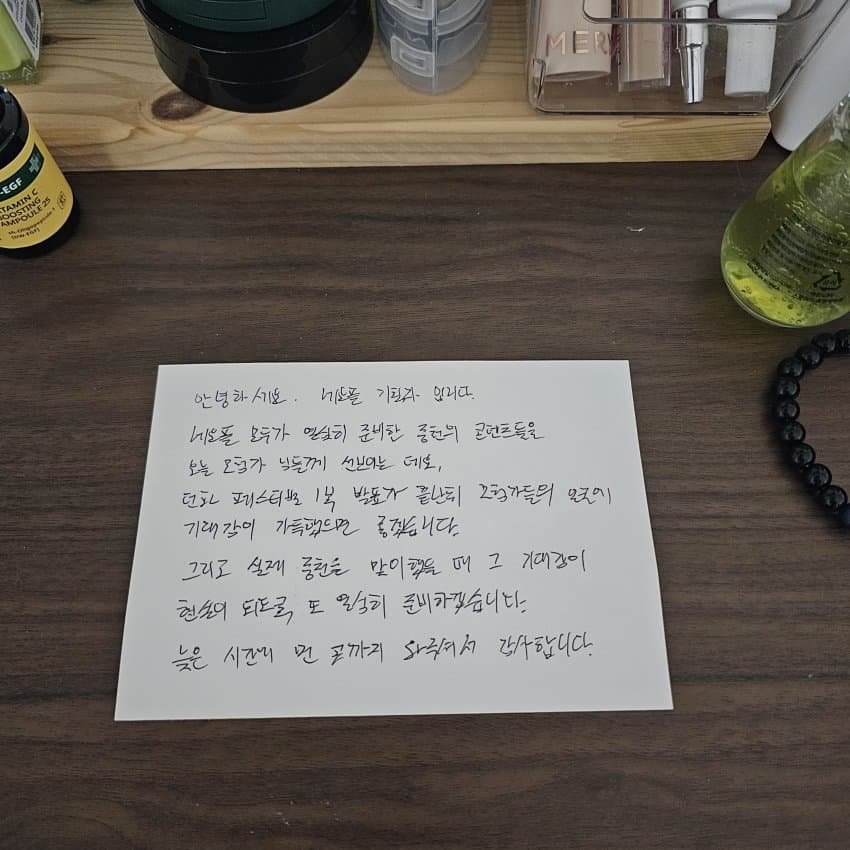 MER
-EGF
TAMIN C
OOSTING
AMPOULE 25
안녕하세요. 네오플 기획자 입니다.
네오플 모두가 열심히 준비한 중천의 콘텐츠들을
오늘 모험가 님들께 선보이는 데요,
던파 페스티벌 1부 발표가 끝난뒤 모험가들의 얼굴에
기대감이 가득했으면 좋겠습니다.
그리고 실제 중천을 맞이했을 때 그 기대감이
현실이 되도록, 또 열심히 준비하겠습니다.
늦은 시간에 먼 곳까지 와주셔서 감사합니다.